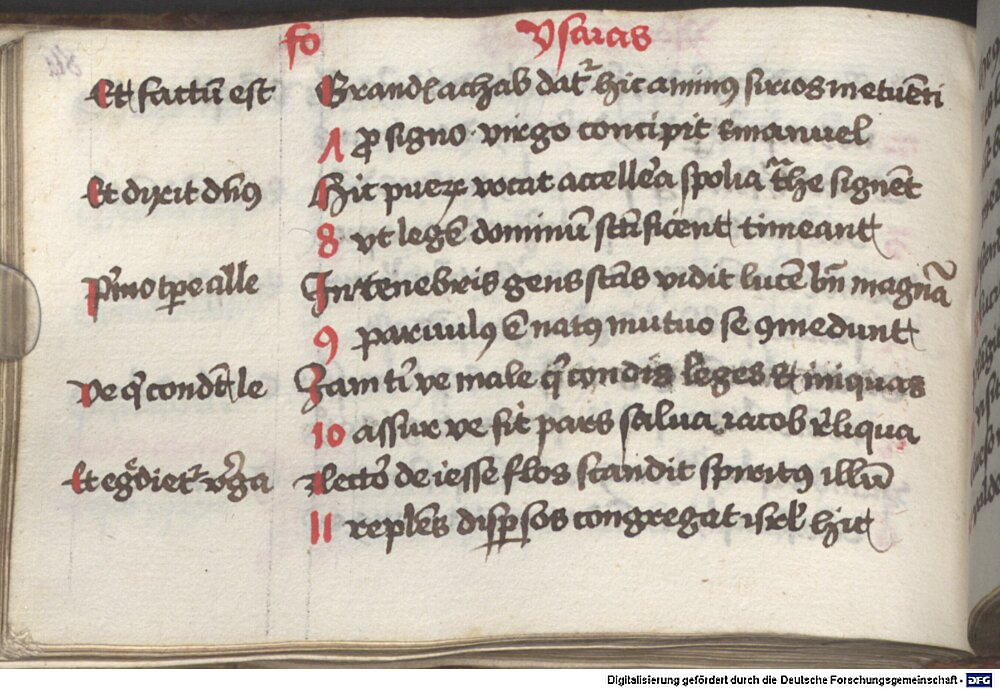 fo Ysaias
Et factū est Grandis achab dat᷑ hic animꝰ sirios metuēti
7 ꝓ signo virgo concipit emanuel
Et dixit dn̄s Hic pueꝝ vocat accelle'a spolia signēt
8 vt legē dominū scīficent timeant
P'mo tꝑe alle In tenebris gens stās vidit lucē bn̄ magnā
9 paruulꝰ ē natꝰ mutuo se ꝯmedunt
Ve q' condūt le Jam ti' ve male q' condis leges et iniquas
10 assur ve fit pars salua iacob r'liqua
Et eg'diet᷑ v'ga de iesse flos scandit spiritꝰ illū
11 replēs disꝑsos congregat isrl' hic
Digitalisierung gefördert durch die Deutsche Forschungsgemeinschaft - DFG